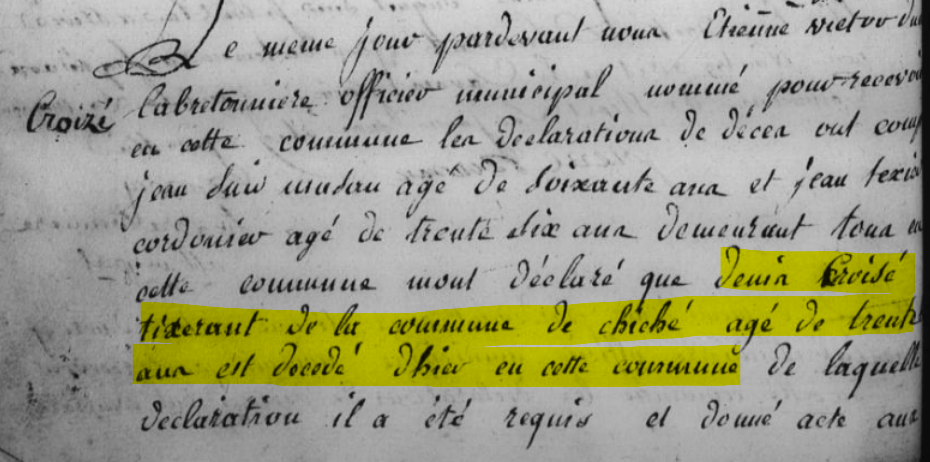 Le meme jour pardevant nous Etienne victor du
Croizé
labretonniere officier municipal nommé pour recevoir
en cette commune les declarations de décès ont comp
jean agé de soixante ans et jean texier
cordonier agé de trente six ans demeurant tous en
cette commune mont déclaré que denis Croisé
tixerant de la commune de chiché agé de trente
ans est decedé dhier en cette commune de laquelle
declaration il a été requis et donné acte aux